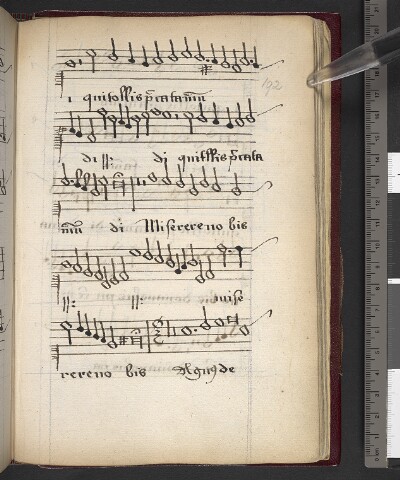 192
i qui tollis pccata mu
di ||: di qui tollis pccata
mu di Miserere no bis
||: ||: mise
rere no bis Agnus de